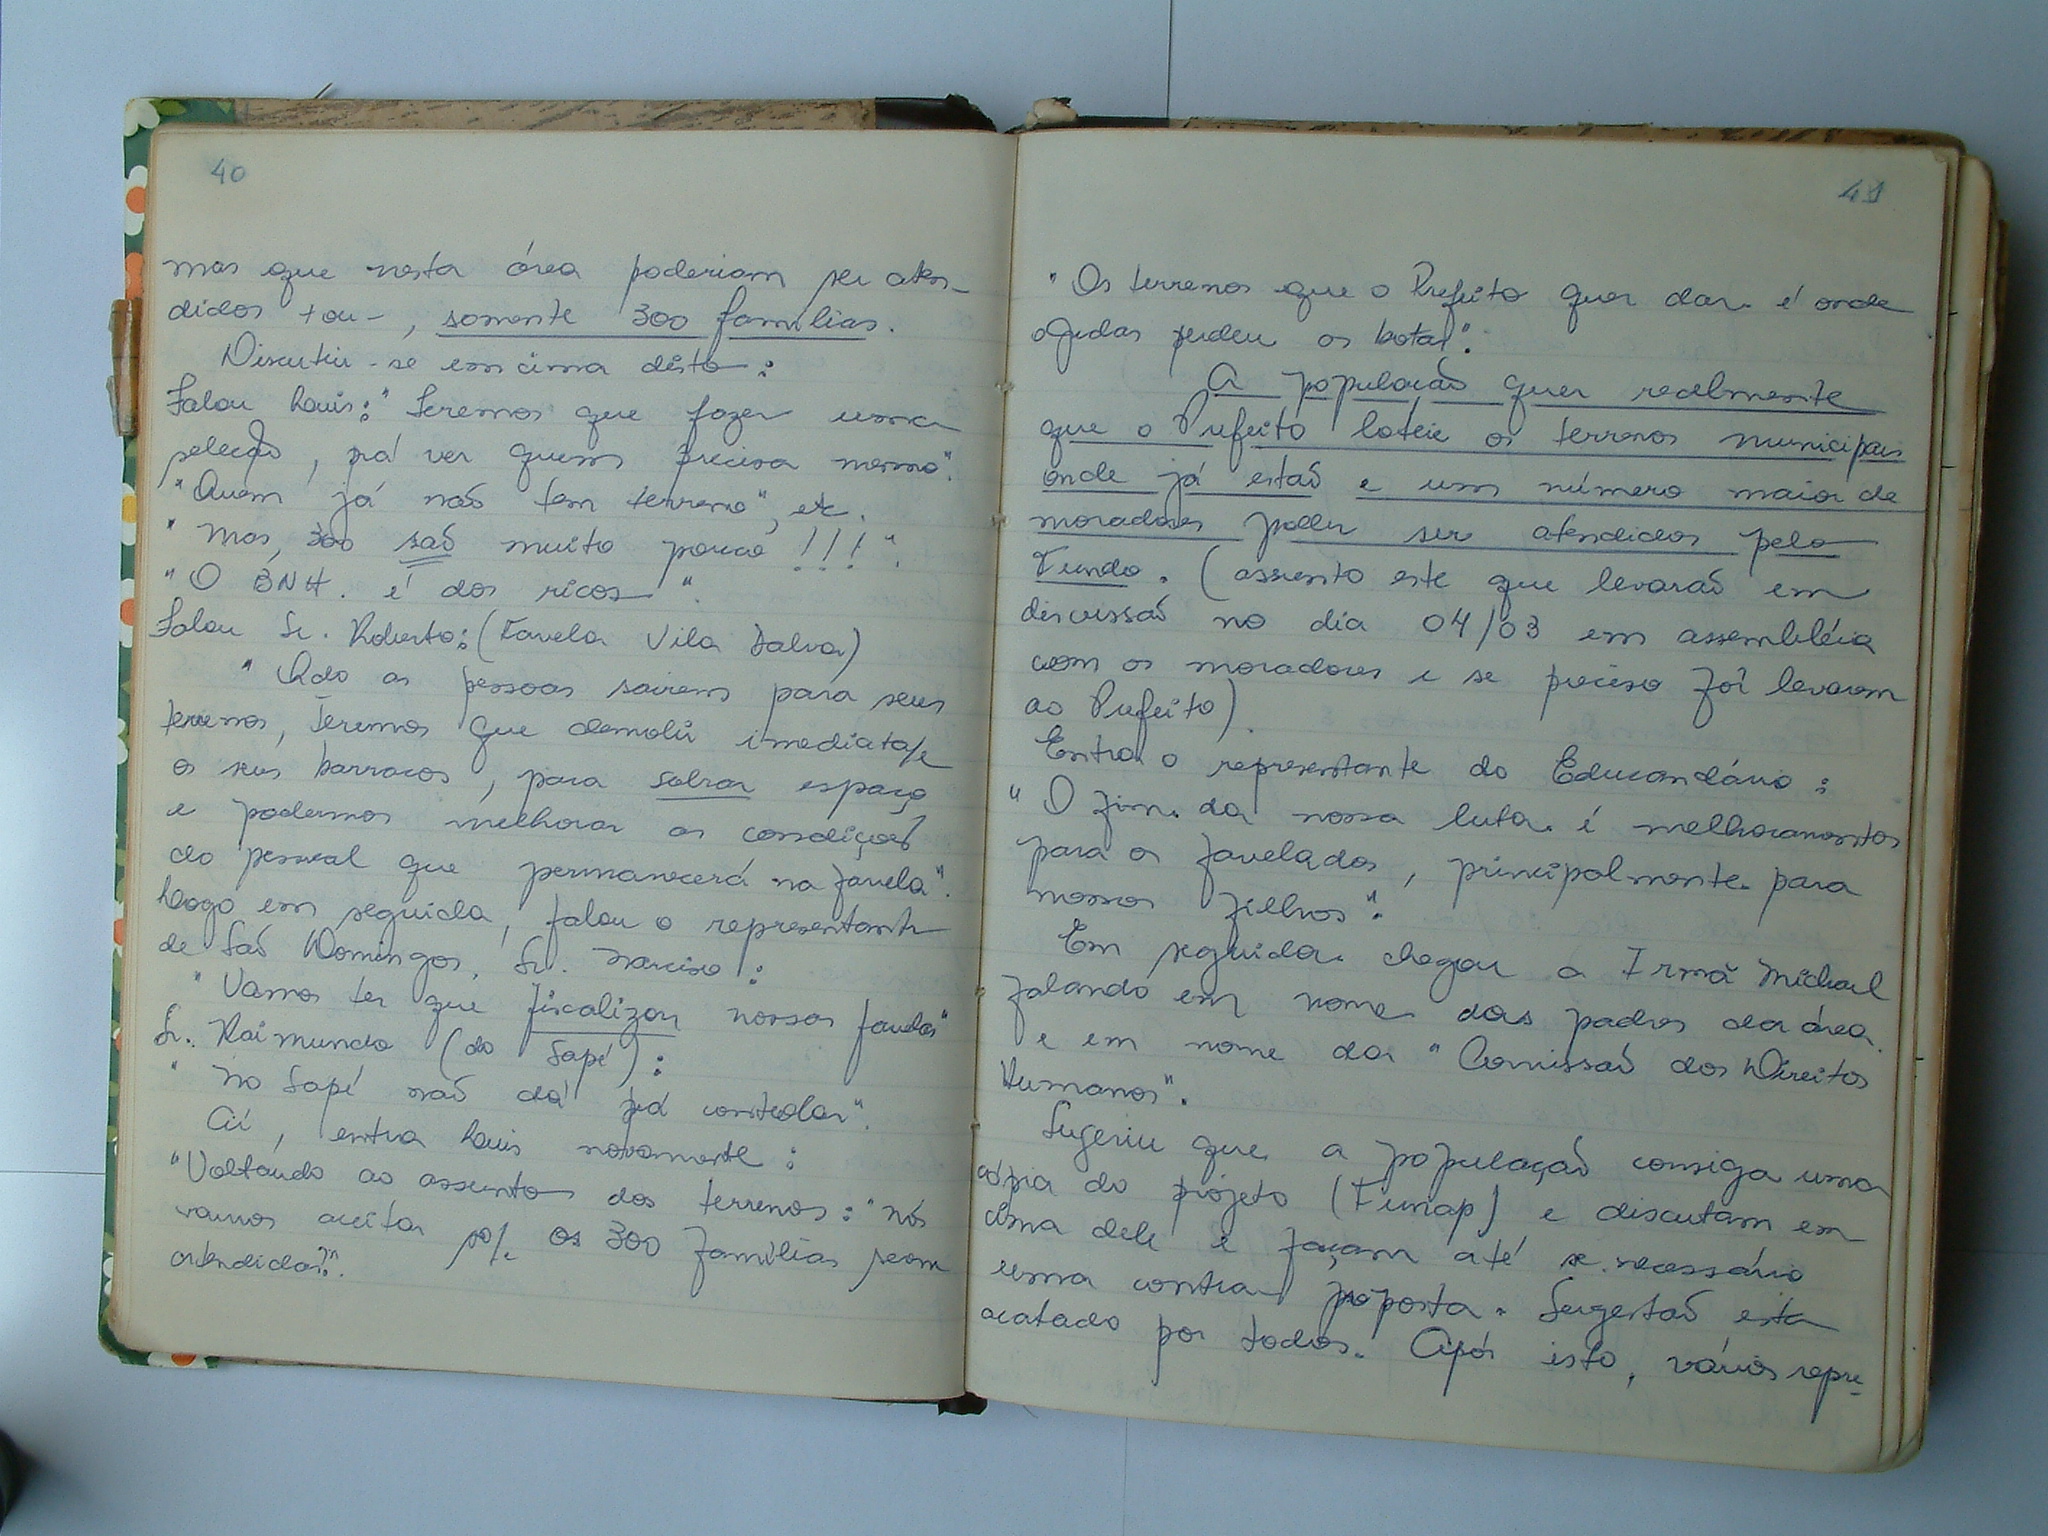 40
mas que nesta área poderiam ser aten-
didos , somente 300 famílias.
Discutiu-se em cima disto:
Falou Luis: "Teremos que fazer uma
seleção, prá ver quem precisa mesmo".
"Quem já não tem terreno", etc.
"Mas, 300 são muito pouco!!!".
"O BNH. é dos ricos".
Falou Sr. Roberto: (Favela Vila Dalva)
"Qdo as pessoas sairem para seus
terrenos, teremos que demolir imediata/e
os seus barracos, para sobrar espaço
e podermos melhorar as condições
do pessoal que permanecerá na favela".
Logo em seguida, falou o representante
de São Domingos, Sr. Narciso:
"Vamos ter que fiscalizar nossas favelas"
Sr. Raimundo (do Sapé):
"No Sapé não dá prá controlar".
Aí, entra Luis novamente:
"Voltando ao assunto dos terrenos: "nós
vamos aceitar os 300 famílias sejam
atendidas?".
41
"Os terrenos que o Prefeito quer dar é onde
Judas perdeu as botas".
A população quer realmente
que o Prefeito loteie os terrenos municipais
onde já estão e um número maior de
moradores poder ser atendidos pelo
Fundo. (assunto este que levarão em
discussão no dia 04/03 em assembléia
com os moradores e se preciso fôr levarem
ao Prefeito).
Entra o representante do Educandário:
"O fim da nossa luta é melhoramentos
para os favelados, principalmente para
nossos filhos".
Em seguida chegou a Irmã Michael
falando em nome dos padres da área
e em nome da "Comissão dos Direitos
Humanos".
Sugeriu que a população consiga uma
cópia do projeto (Funap) e discutam em
cima dele e façam até se necessário
uma contra proposta. Sugestão esta
acatado por todos. Após isto, vários repre-